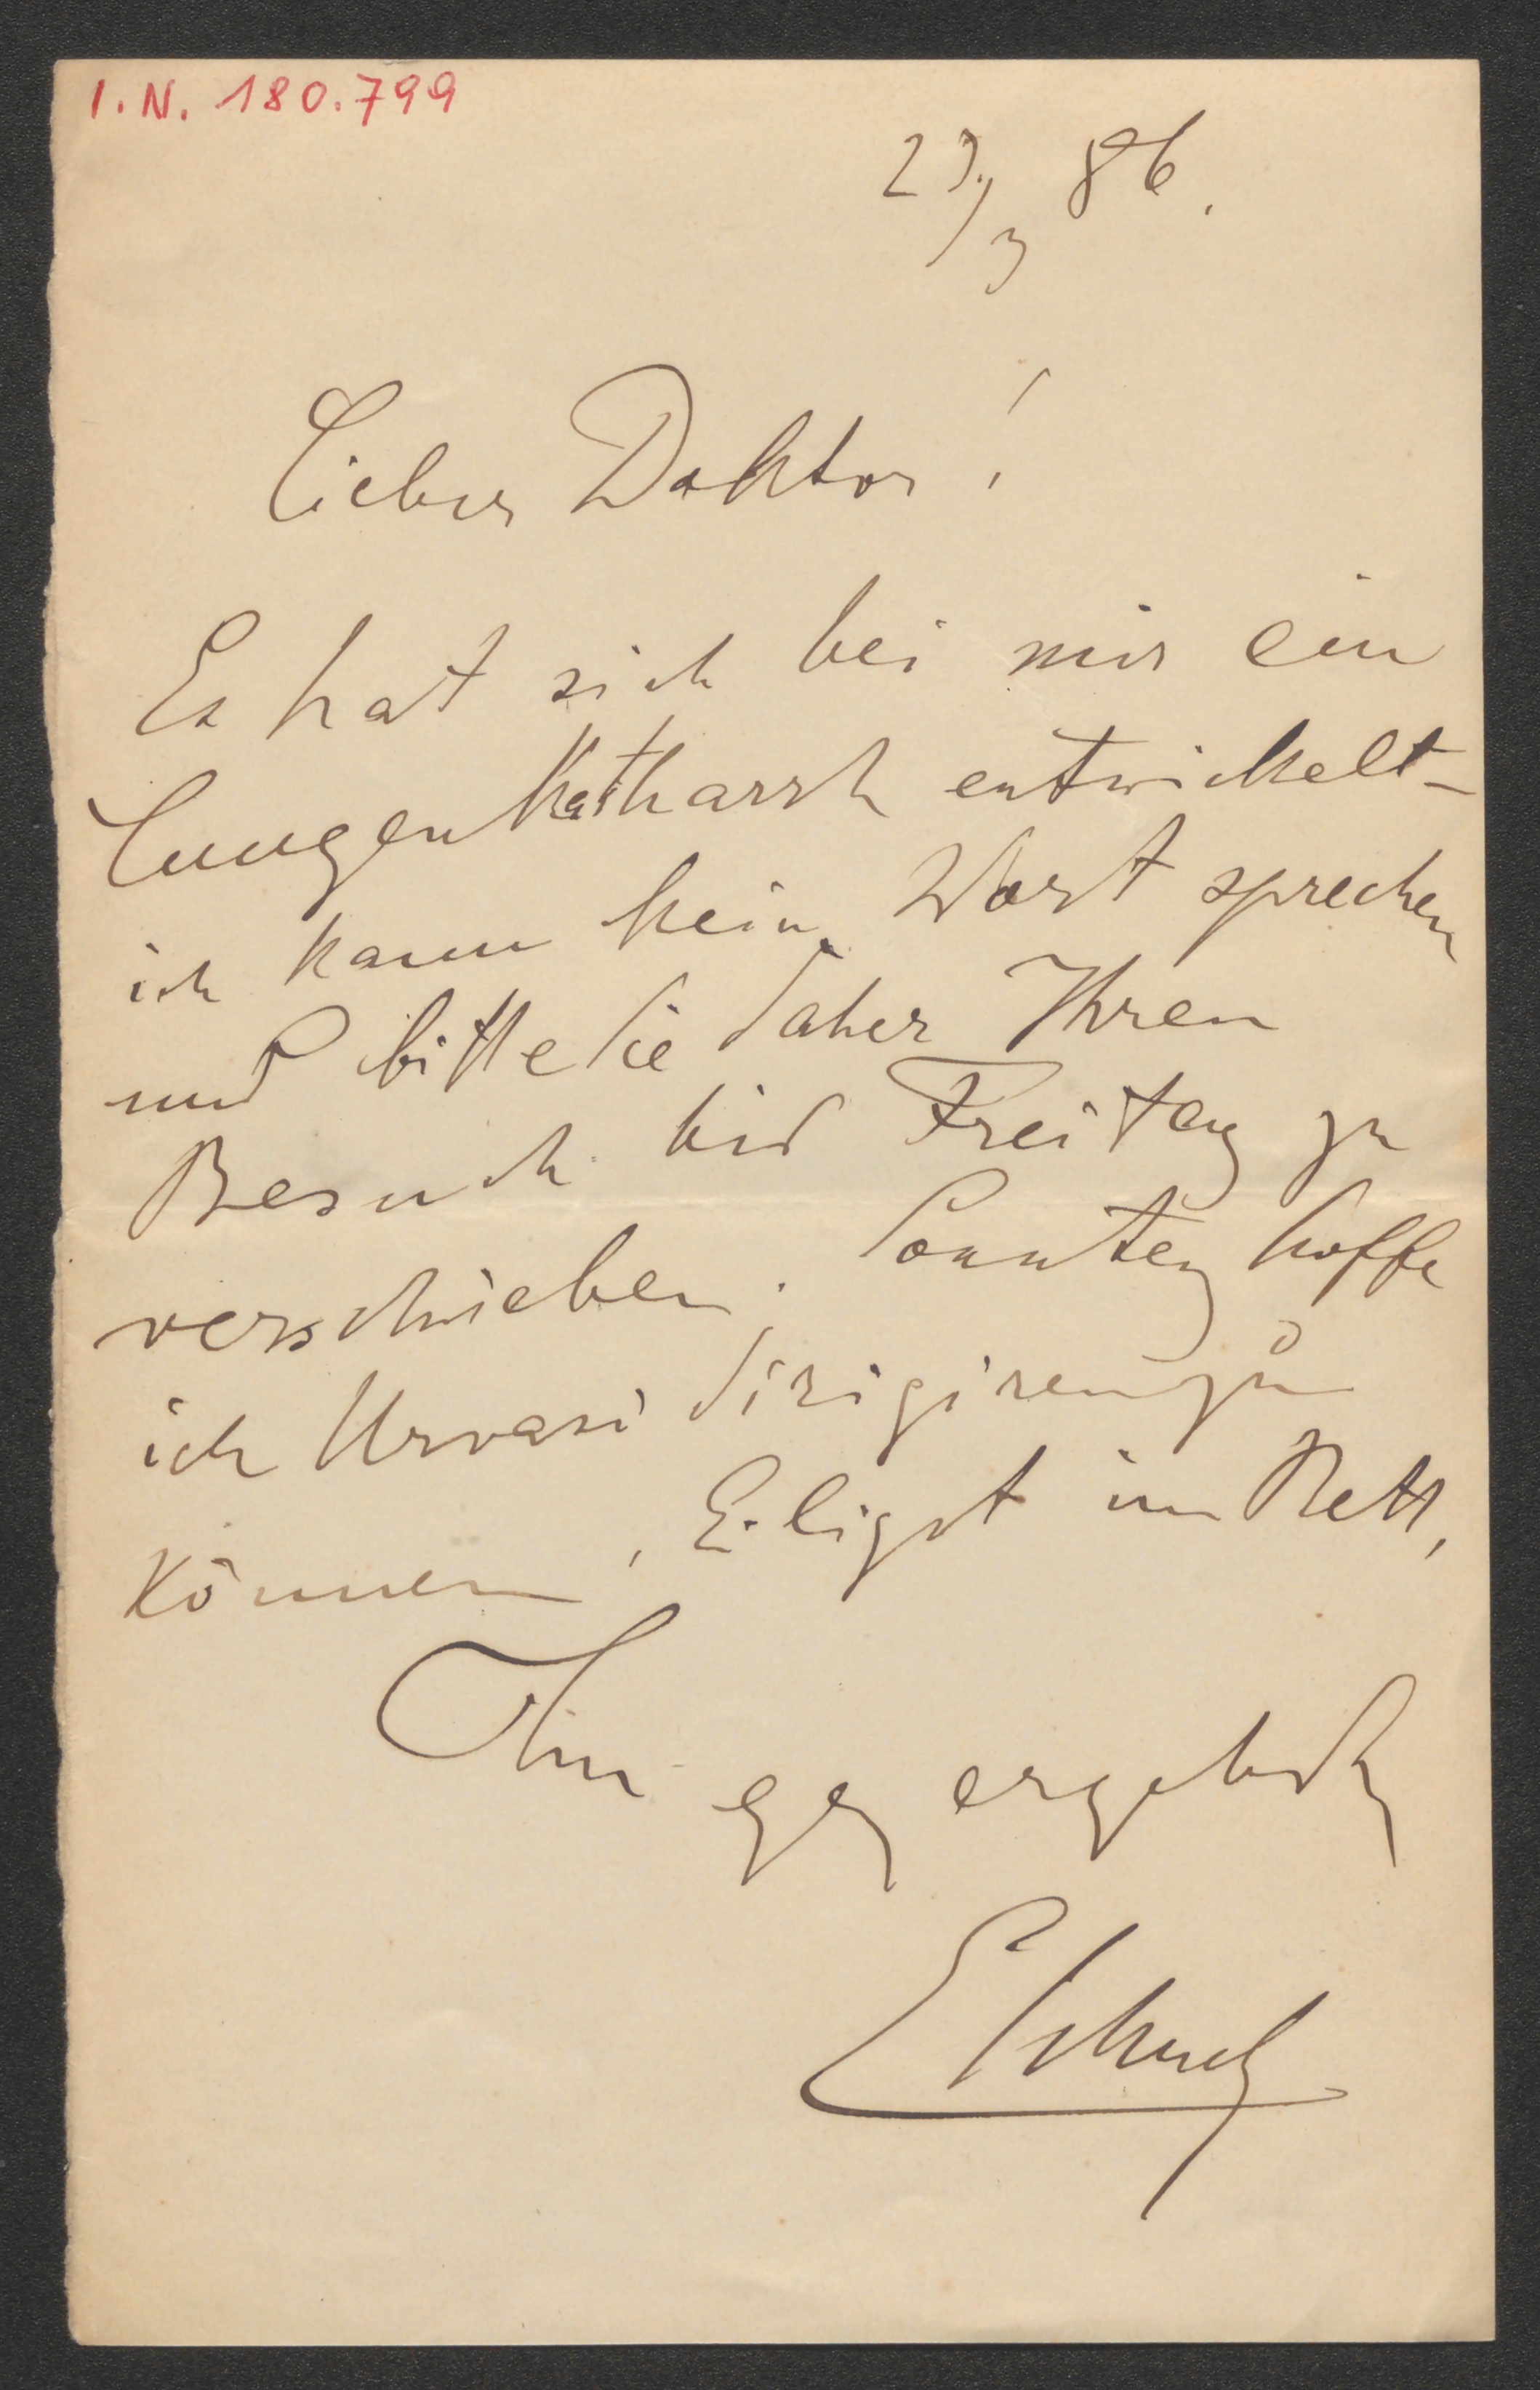 I.N. 180.799
29./3 86.
Lieber Doktor!
Es hat sich bei mir ein
Lungenkatharrh entwickelt –
ich kann kein Wort sprechen
und bitte Sie daher Ihren
Besuch bis Freitag zu
verschieben. Sonntag hoffe
ich Urvasi dirigiren zu
können. E. liegt im Bett,
Ihr ergebenst
ESchuch